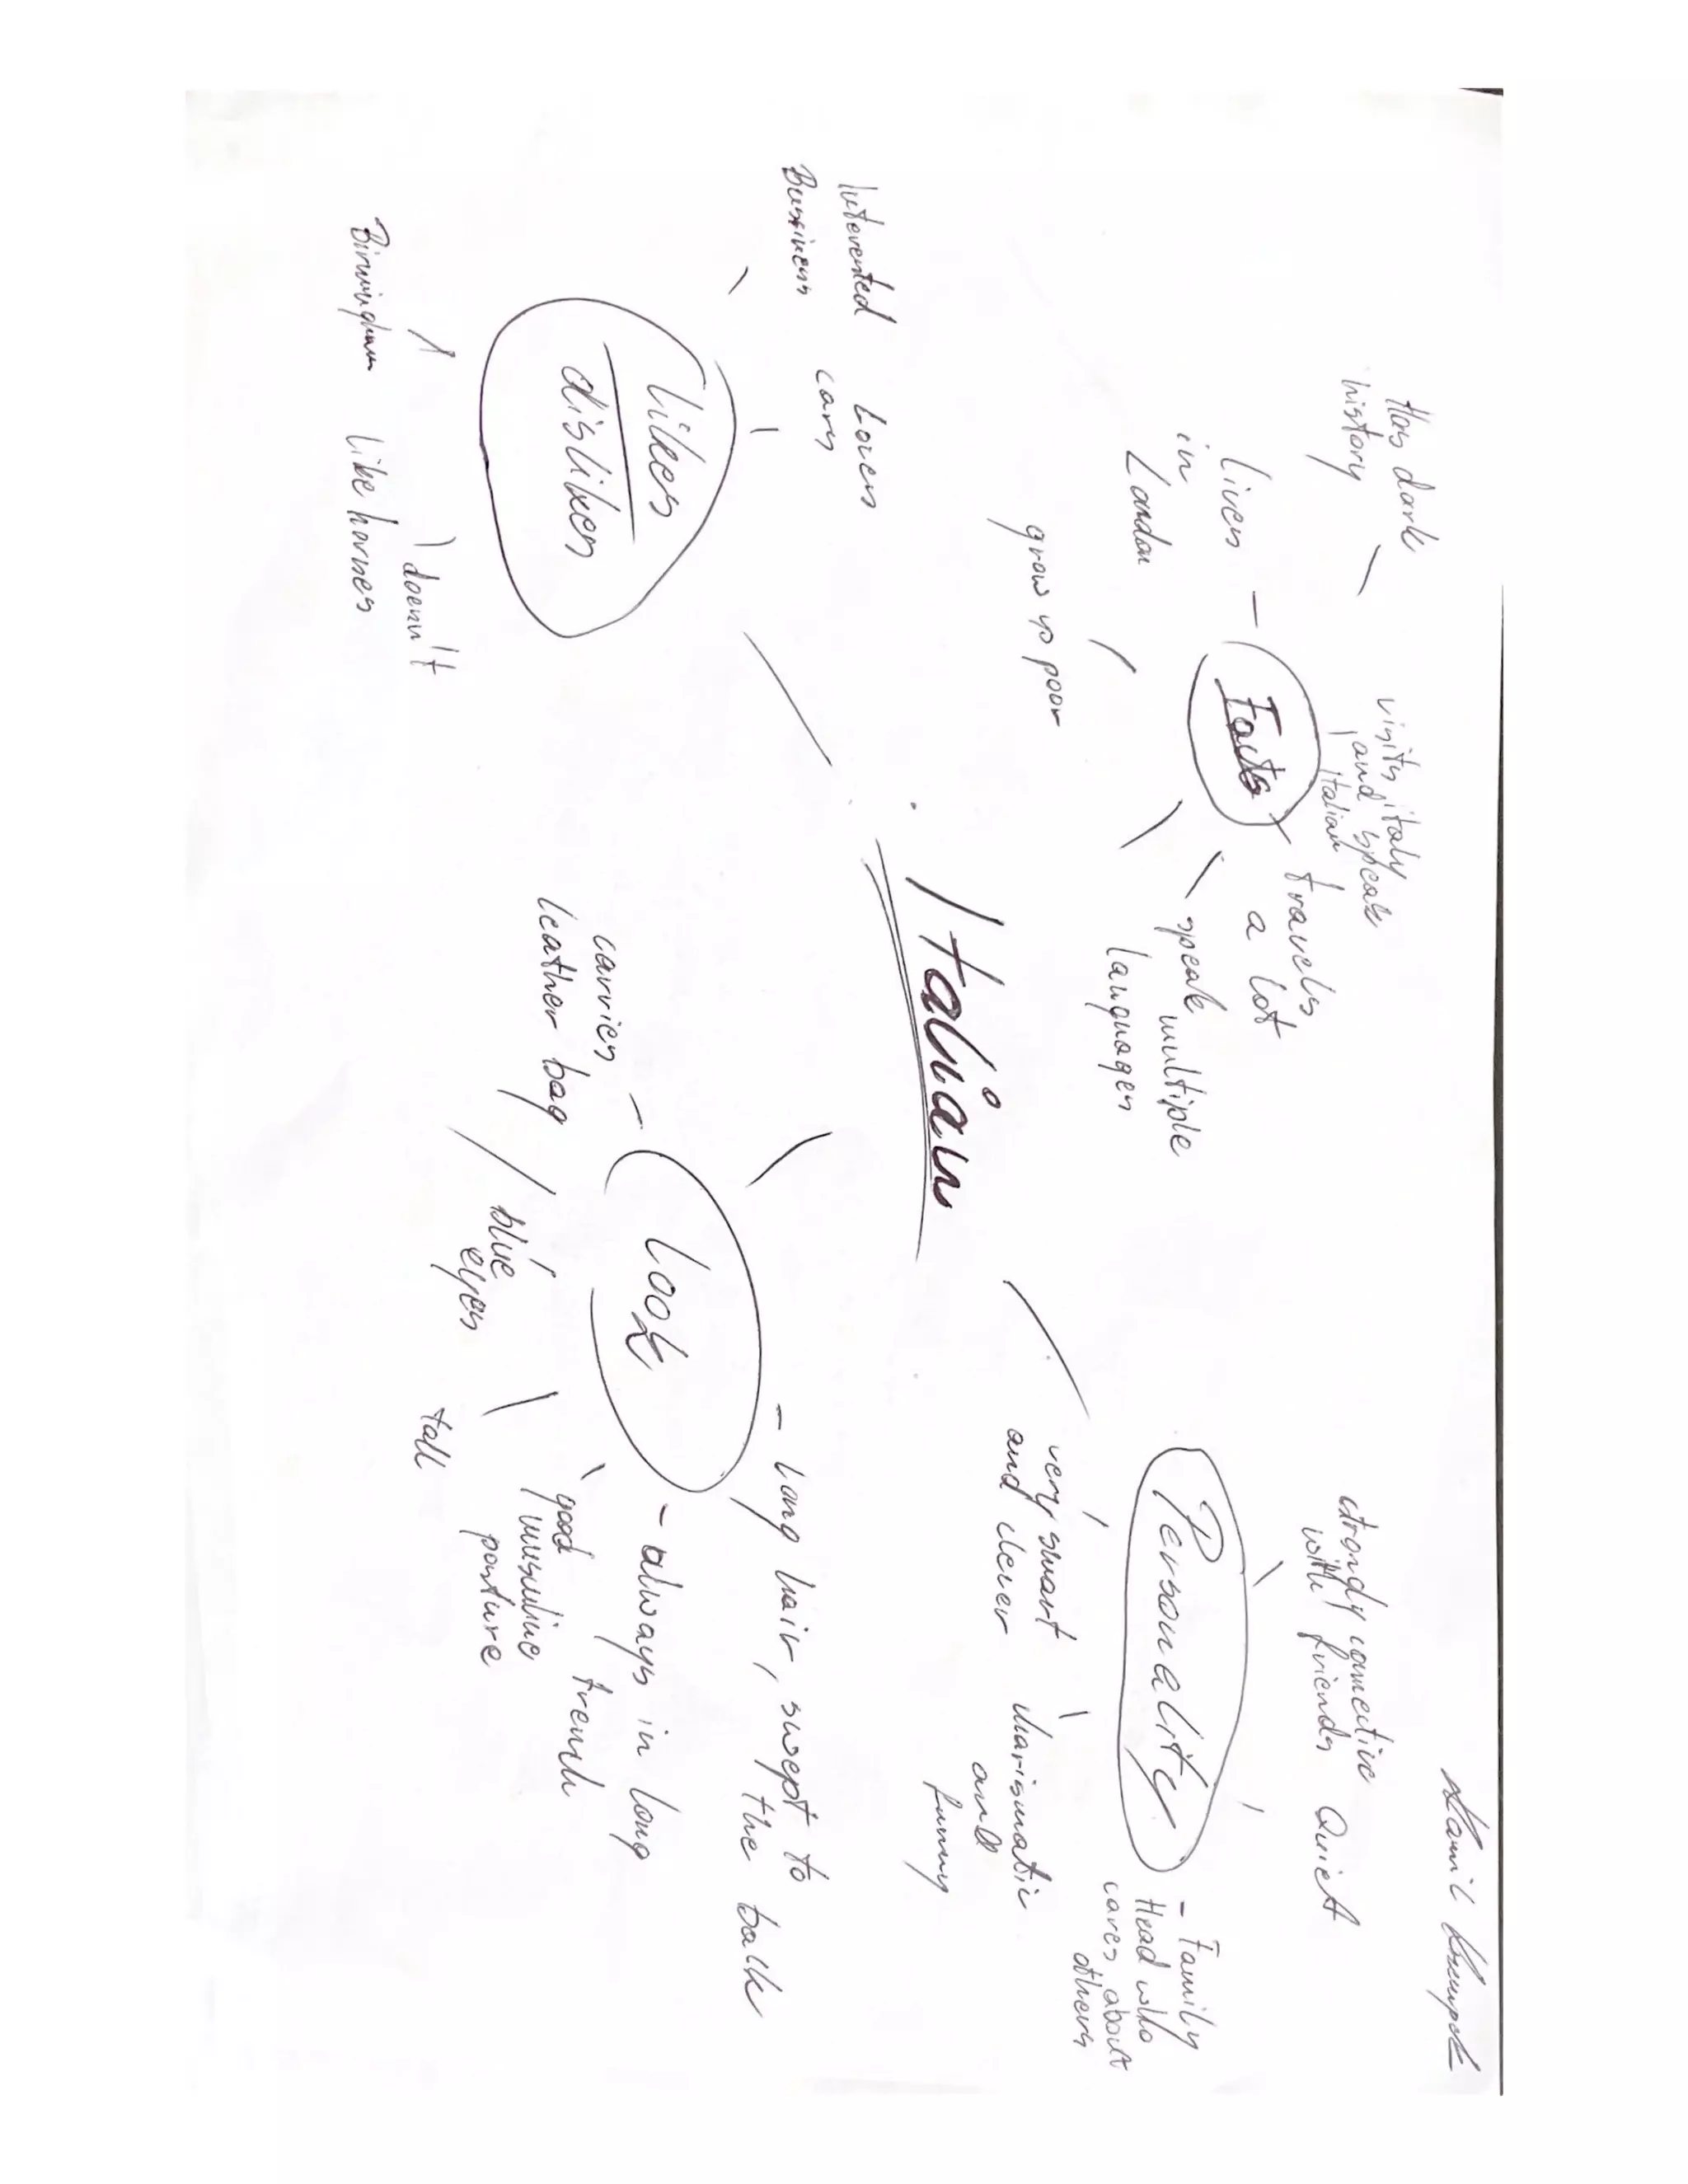 Kamil
Has dark
history
visits italy
and speak
Italian
Lives
in
London
Facts
travels
a lot
speak multiple
languages
grow up poor
strongly conective
with friends
Quiet
Personality
- Family
Head who
cares about
others
very smart
and clever
charismatic
and
funny
Italian
Interested
Bussiness
Loves
cars
likes
dislikes
doesn't
like horses
Birmingham
Look
- long hair, swept to
the back
- always in long
trench
good
musculine
posture
tall
blue
eyes
carries
leather bag